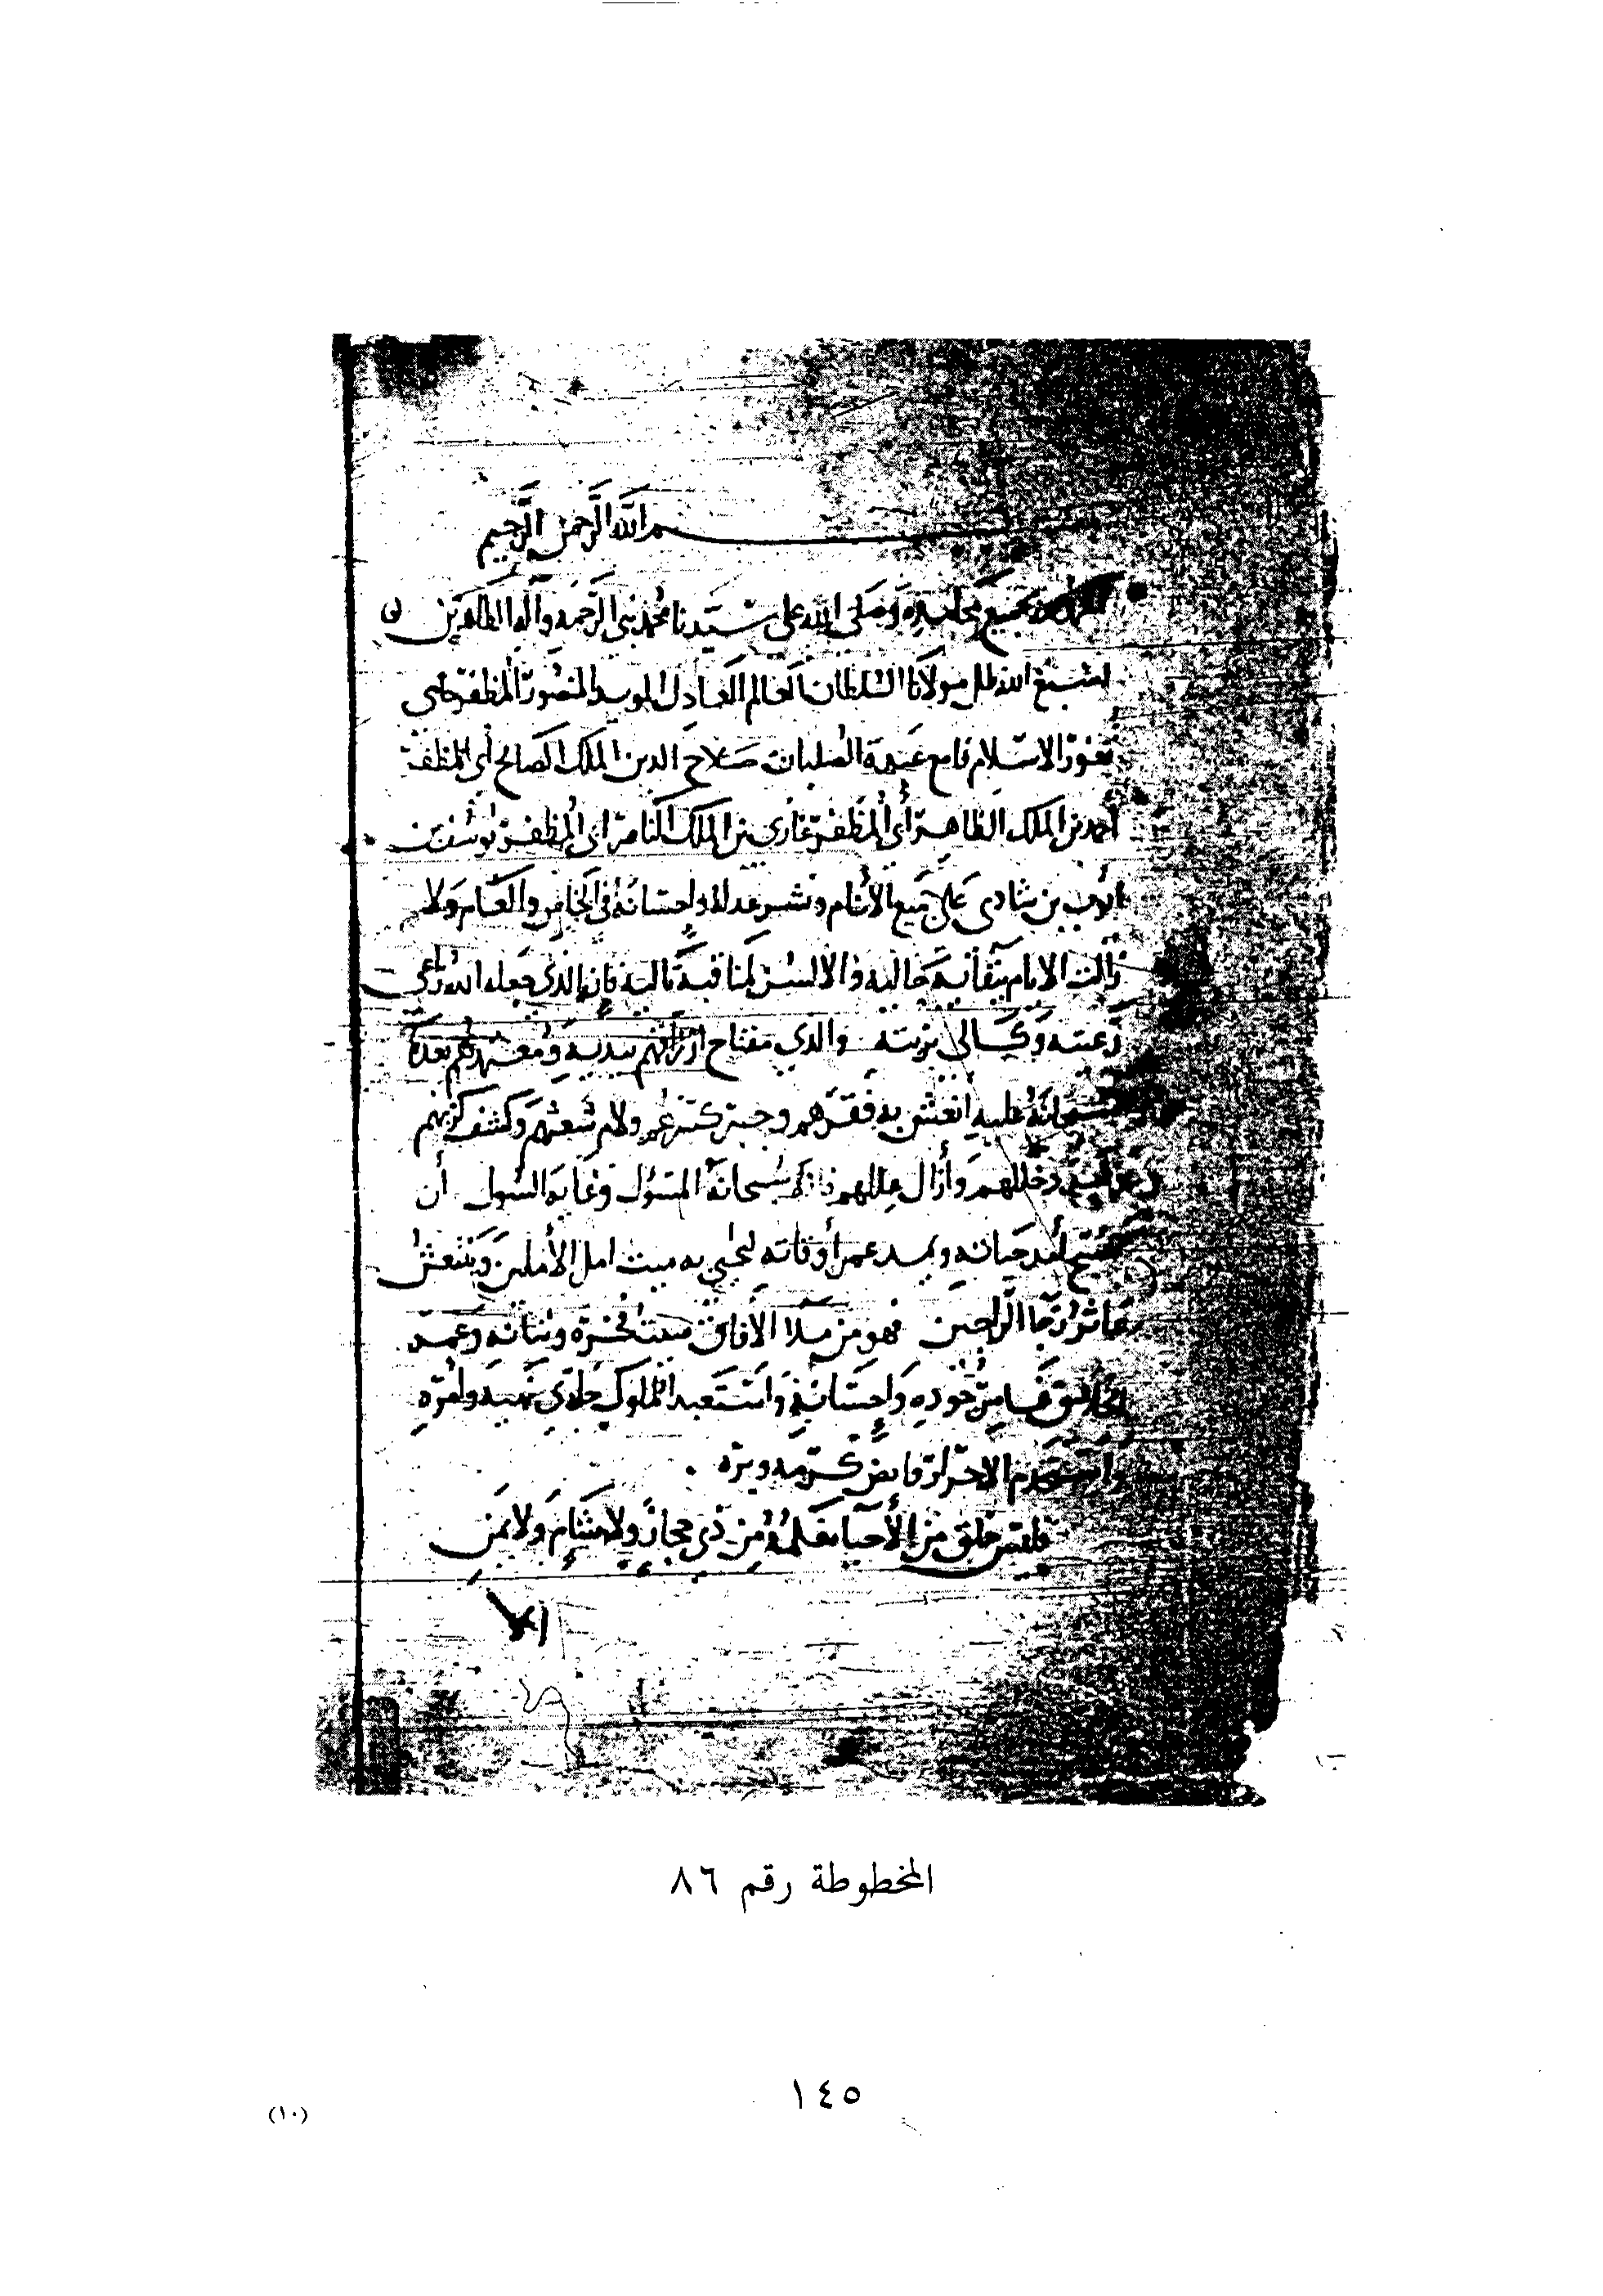 بسم الله الرحمن الرحيم
بجميع محامده وصلى الله على سيدنا محمد نبي الرحمة وآله الطاهرين
الله ظل مولانا السلطان العالم العادل المويد المنصور المظفر حامي
ثغور الاسلام قامع عبدة الصلبان صلاح الدين الملك الصالح أبي المظفر
أحمد بن الملك الظاهر أبي المظفر غازي بن الملك الناصر ابي المظفر يوسف بن
أيوب بن شادي على جميع الأنام ونشر عدله وإحسانه في الخاص والعام ولا
زالت الايام ببقائه حالية والالسن بمناقبه تالية فإنه الذي جعله الله راعي
رعيته وكالى بريته والذي مفتاح ارزاقهم بيديه و بعد
سبحانه عليه انعش به فقرهم وجبر كسرهم ولم شعثهم وكشف كربهم
خللهم وأزال عللهم فانه سبحانه المسؤل وغاية السول أن
يفسح أمد حياته ويمد عمر أوقاته ليحيي به ميت امل الأملين وينتعش
عاثر رجا الراجين فهو من ملأ الأفاق صيت فخره وثنائه وعم
الخلائق جوده وإحسانه واستعبد الملوك نهيه وامره
واستخدم الاحرار فايض كرمه وبره
فليس خلق من الأحيا نعلمه من ذي حجاز ولا شام ولا يمن
الا
المخطوطة رقم ٨٦
١٤٥
(١٠)